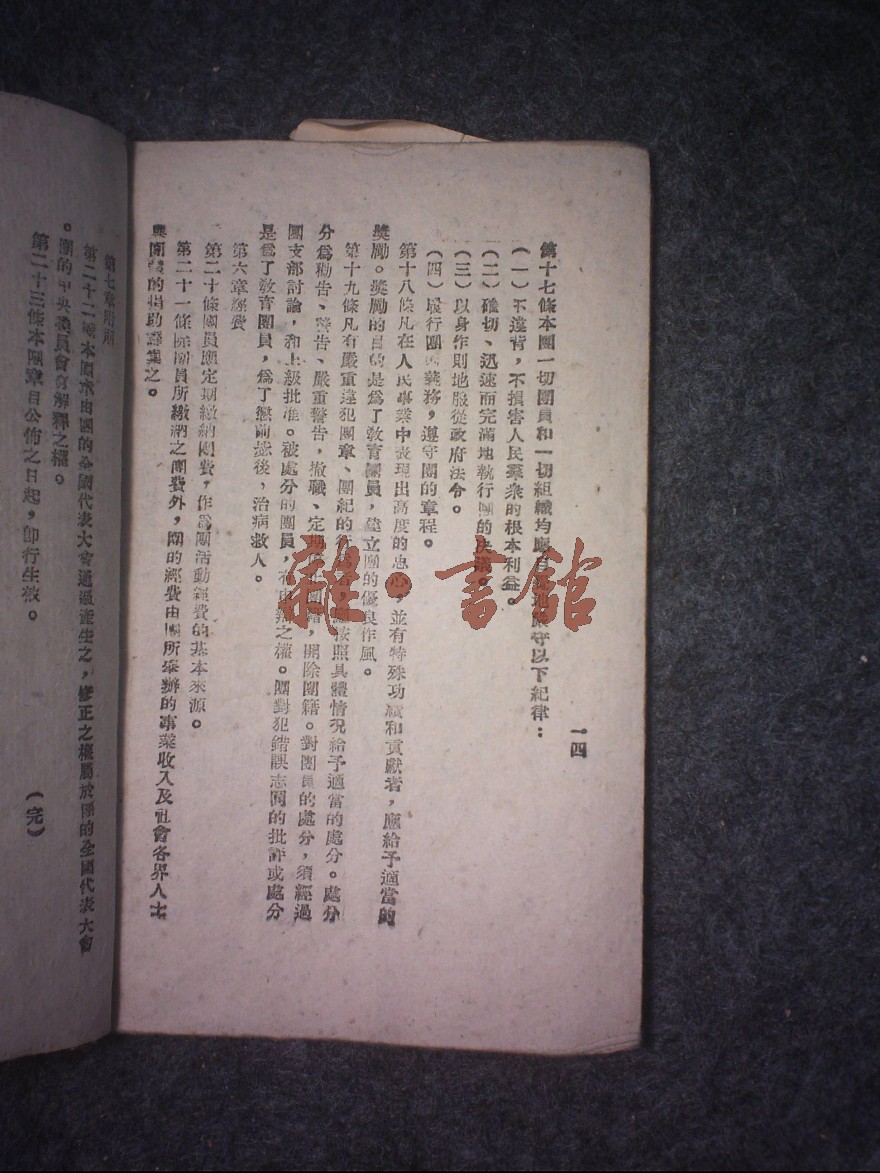 一四
第十七條本團一切團員和一切組織均應自覺地嚴守以下紀律：
（一）不違背，不損害人民羣衆的根本利益。
（二）確切、迅速而完滿地執行團的決議。
（三）以身作則地服從政府法令。
（四）履行團的義務，遵守團的章程。
第十八條凡在人民事業中表現出高度的忠心，並有特殊功績和貢獻者，應給予適當的
獎勵。獎勵的目的是爲了教育團員，建立團的優良作風。
第十九條凡有嚴重違犯團章、團紀的行爲者，應按照具體情況給予適當的處分。處分
分爲勸告、警告、嚴重警告，撤職、定期停止團籍，開除團籍。對團員的處分，須經過
團支部討論，和上級批准。被處分的團員，有申辯之權。團對犯錯誤志同的批評或處分
是爲了教育團員，爲了懲前毖後，治病救人。
第六章經費
第二十條團員應定期繳納團費，作爲團活動經費的基本來源。
第二十一條除團員所繳納之團費外，團的經費由團所舉辦的事業收入及社會各界人士
與團體的捐助籌集之。
第七章附則
第二十二條本團章由團的全國代表大會通過產生之，修正之權屬於團的全國代表大會
。團的中央委員會有解釋之權。
第二十三條本團章自公佈之日起，即行生效。
（完）
雜·書館